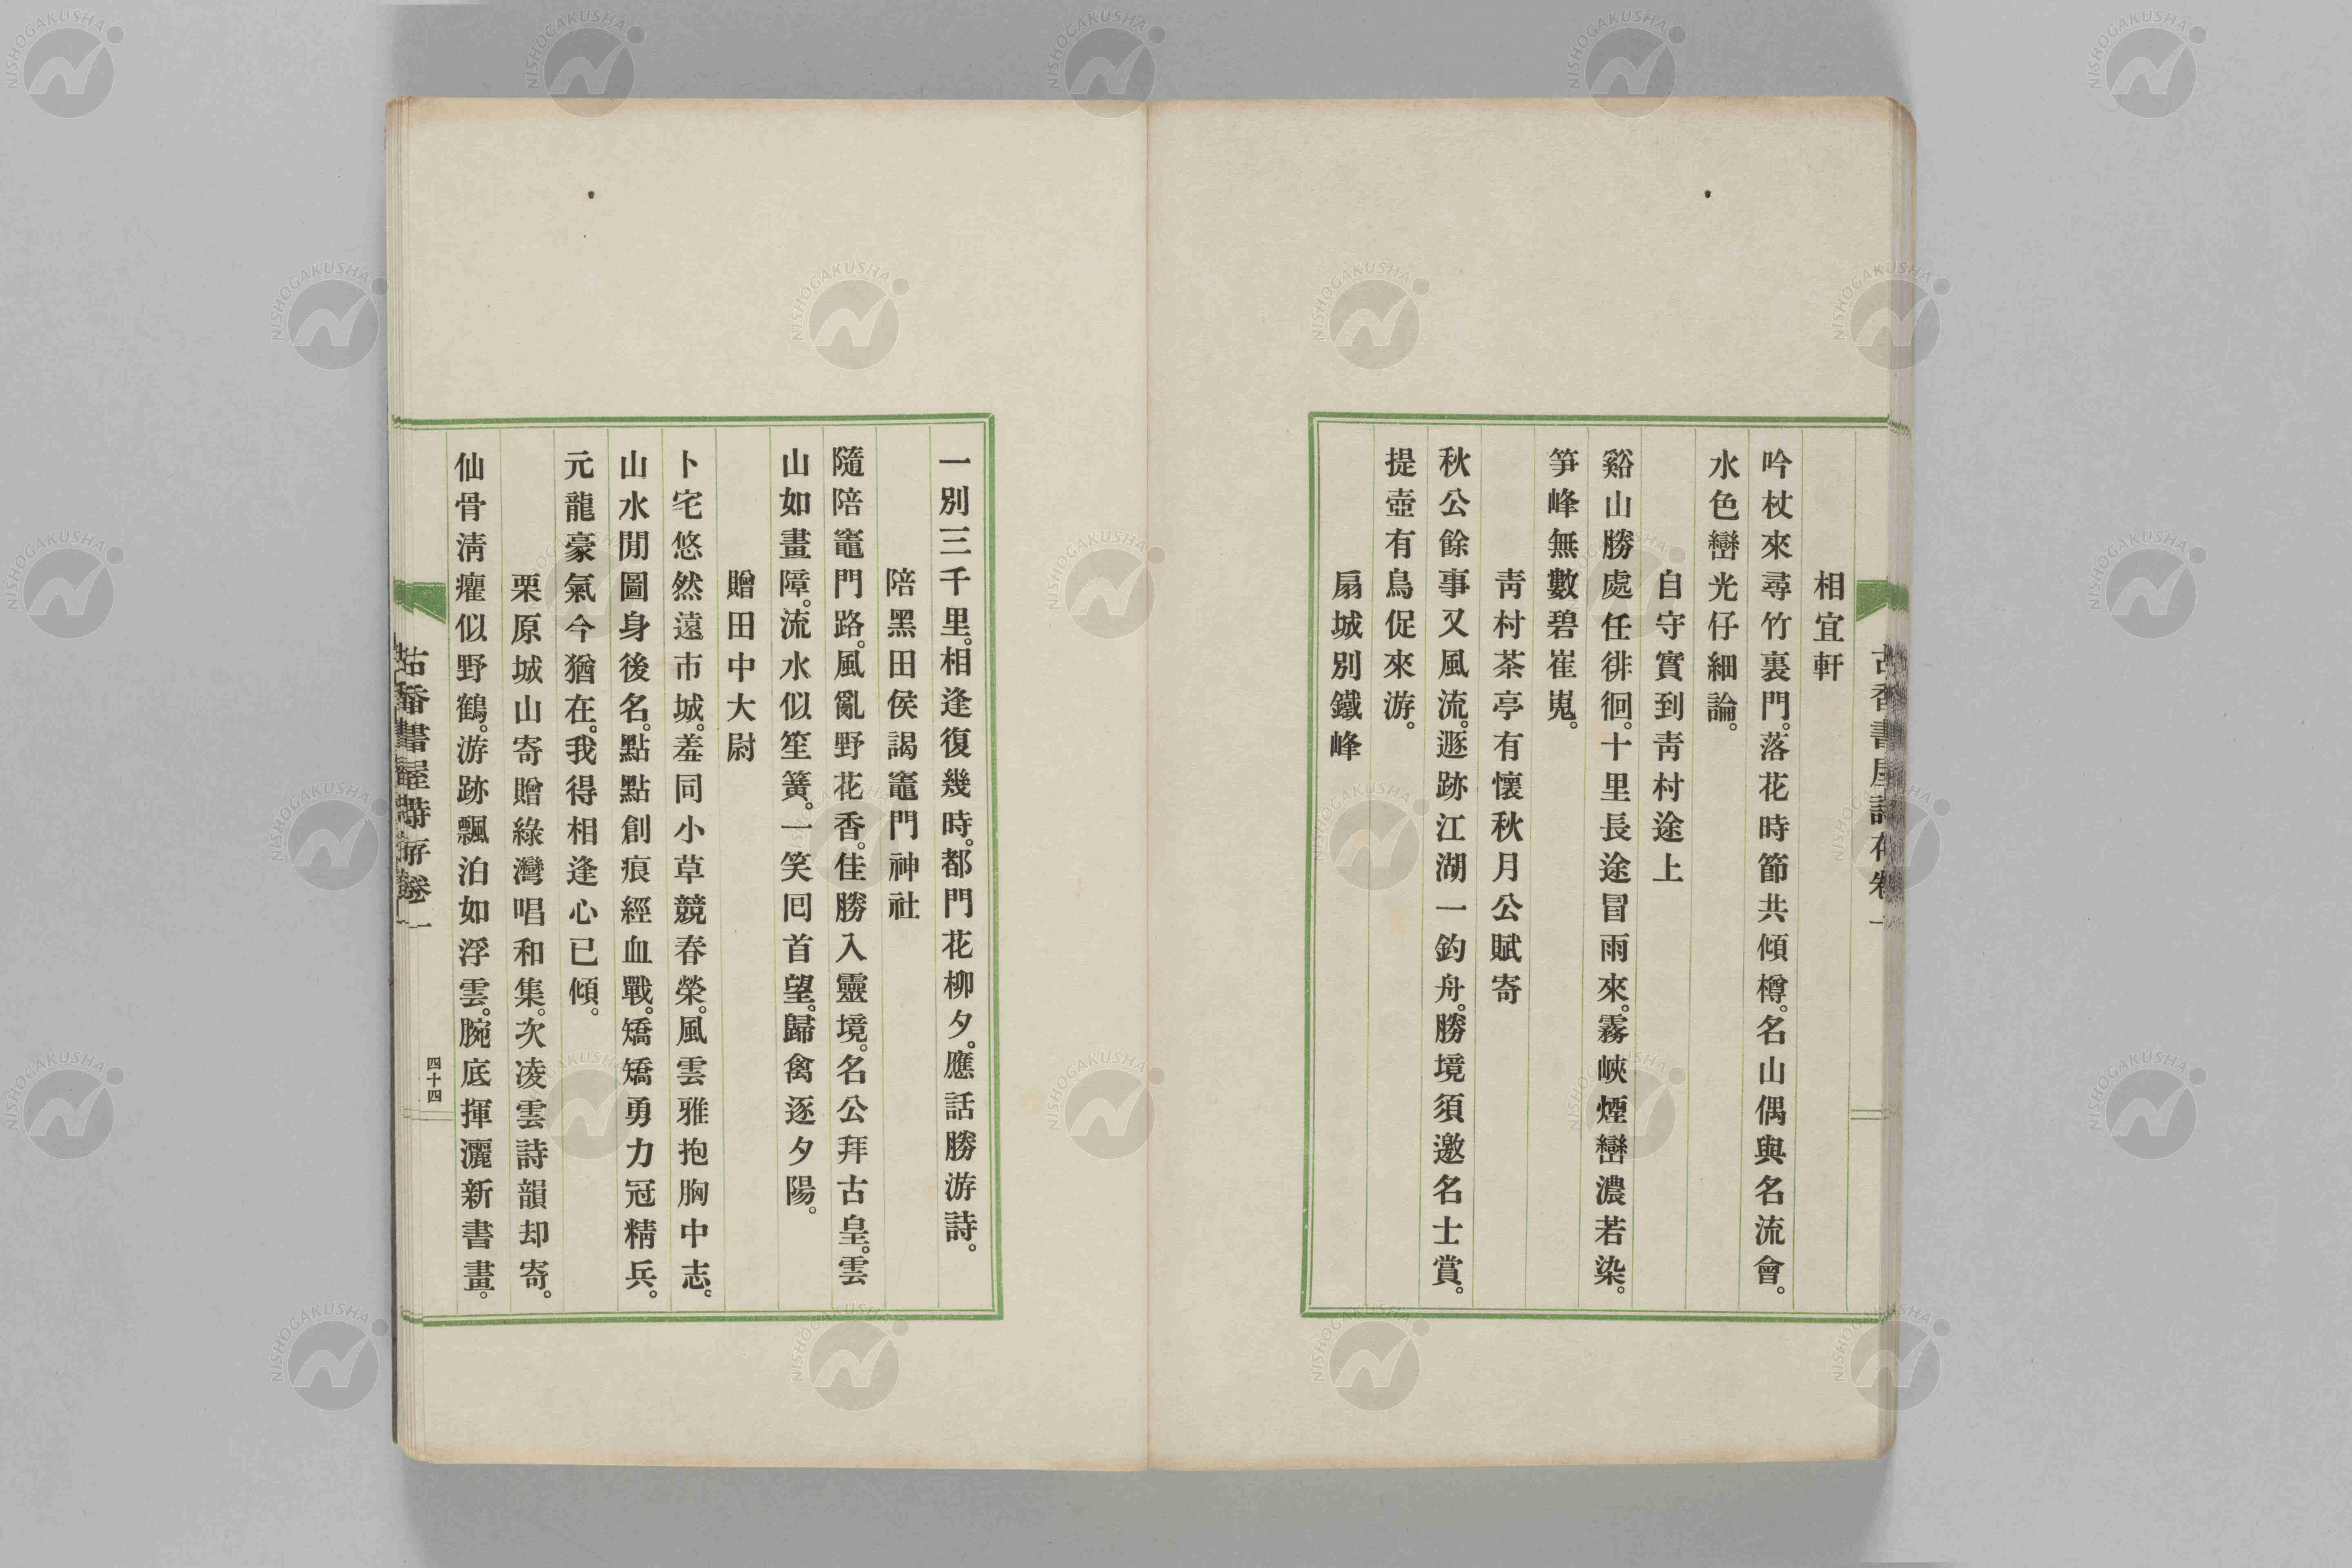 相宜軒
吟杖來尋竹裏門。落花時節共傾樽。名山偶與名流會。
水色巒光仔細論。
自守實到靑村途上
谿山勝處任徘徊。十里長途冒雨來。霧峽煙巒濃若染。
笋峰無數碧崔嵬。
靑村茶亭有懷秋月公賦寄
秋公餘事又風流。遯跡江湖一釣舟。勝境須邀名士賞。
提壺有鳥促來游。
扇城別鐵峰
一別三千里。相逢復幾時。都門花柳夕。應話勝游詩。
陪黑田侯謁竈門神社
隨陪竈門路。風亂野花香。佳勝入靈境。名公拜古皇。雲
山如畫障。流水似笙簧。一笑回首望。歸禽逐夕陽。
贈田中大尉
卜宅悠然遠市城。羞同小草競春榮。風雲雅抱胸中志。
山水閒圖身後名。點點創痕經血戰。矯矯勇力冠精兵。
元龍豪氣今猶在。我得相逢心已傾。
栗原城山寄贈綠灣唱和集。次凌雲詩韻却寄。
仙骨淸癯似野鶴。游跡飄泊如浮雲。腕底揮灑新書畫。
古香書屋詩存卷一
四十四
NISHOGAKUSHA